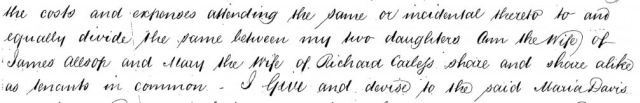 the costs and expenses attending the same or incidental thereto to and
equally divide the same between my two daughters Ann the Wife of
James Allsop and Mary the Wife of Richard Carless share and share alike
as tenants in common - I Give and devise to the said Maria Davis